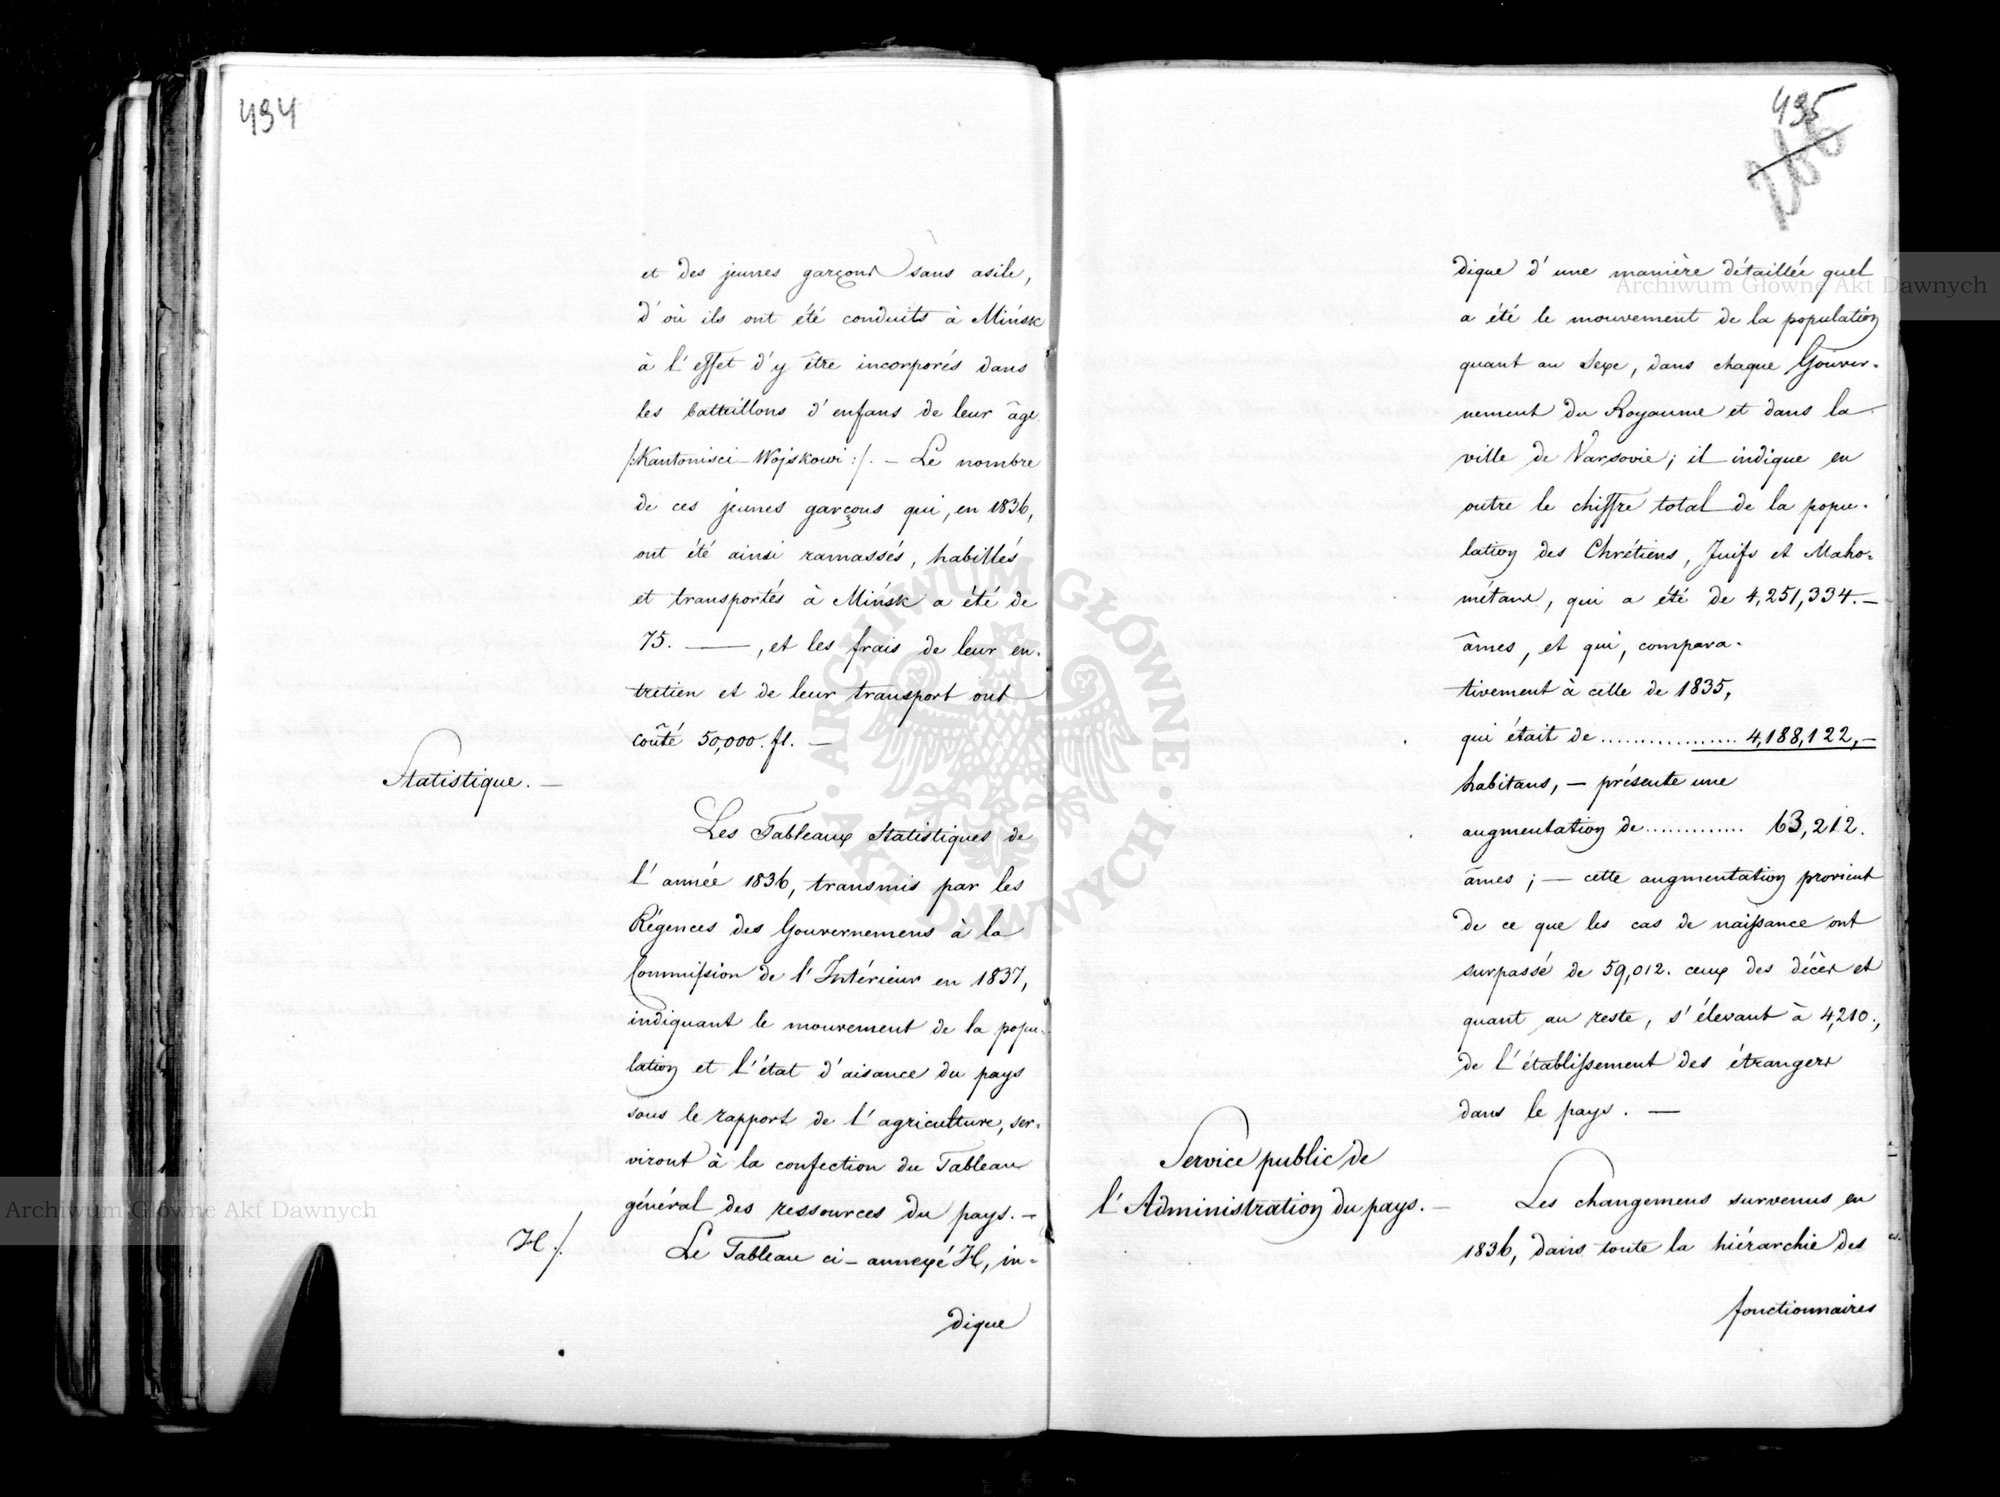 494
et des jeunes garçons sans asile,
d'où ils ont été conduits à Mińsk
à l'effet d'y être incorporés dans
les battaillons d'enfans de leur âge
/:Kantonisci Wojskowi:/. — Le nombre
de ces jeunes garçons qui, en 1836,
ont été ainsi ramassés, habillés
et transportés à Mińsk a été de
75. —, et les frais de leur en-
tretien et de leur transport ont
coûté 50,000. fl. —
Statistique. —
Les Tableaux Statistiques de
l'année 1836, transmis par les
Régences des Gouvernemens à la
Commission de l'Intérieur en 1837,
indiquant le mouvement de la popu-
lation et l'état d'aisance du pays
sous le rapport de l'agriculture, ser-
viront à la confection du Tableau
général des ressources du pays. —
H/.
Le Tableau ci-annexé H, in-
dique
495
266
dique d'une manière détaillée quel
a été le mouvement de la population
quant au Sexe, dans chaque Gouver-
nement du Royaume et dans la
ville de Varsovie; il indique en
outre le chiffre total de la popu-
lation des Chrétiens, Juifs et Maho-
métans, qui a été de 4,251,334. —
âmes, et qui, compara-
tivement à celle de 1835,
qui était de .................. 4,188,122, —
habitans, — présente une
augmentation de ............. 63,212.
âmes; — cette augmentation provient
de ce que les cas de naissance ont
surpassé de 59,012. ceux des décès et
quant au reste, s'élevant à 4,210.,
de l'établissement des étrangers
dans le pays. —
Service public de
l'Administration du pays. —
Les changemens survenus en
1836, dans toute la hiérarchie des
fonctionnaires
Archiwum Główne Akt Dawnych
Archiwum Główne Akt Dawnych
ARCHIWUM GŁÓWNE · AKT DAWNYCH ·